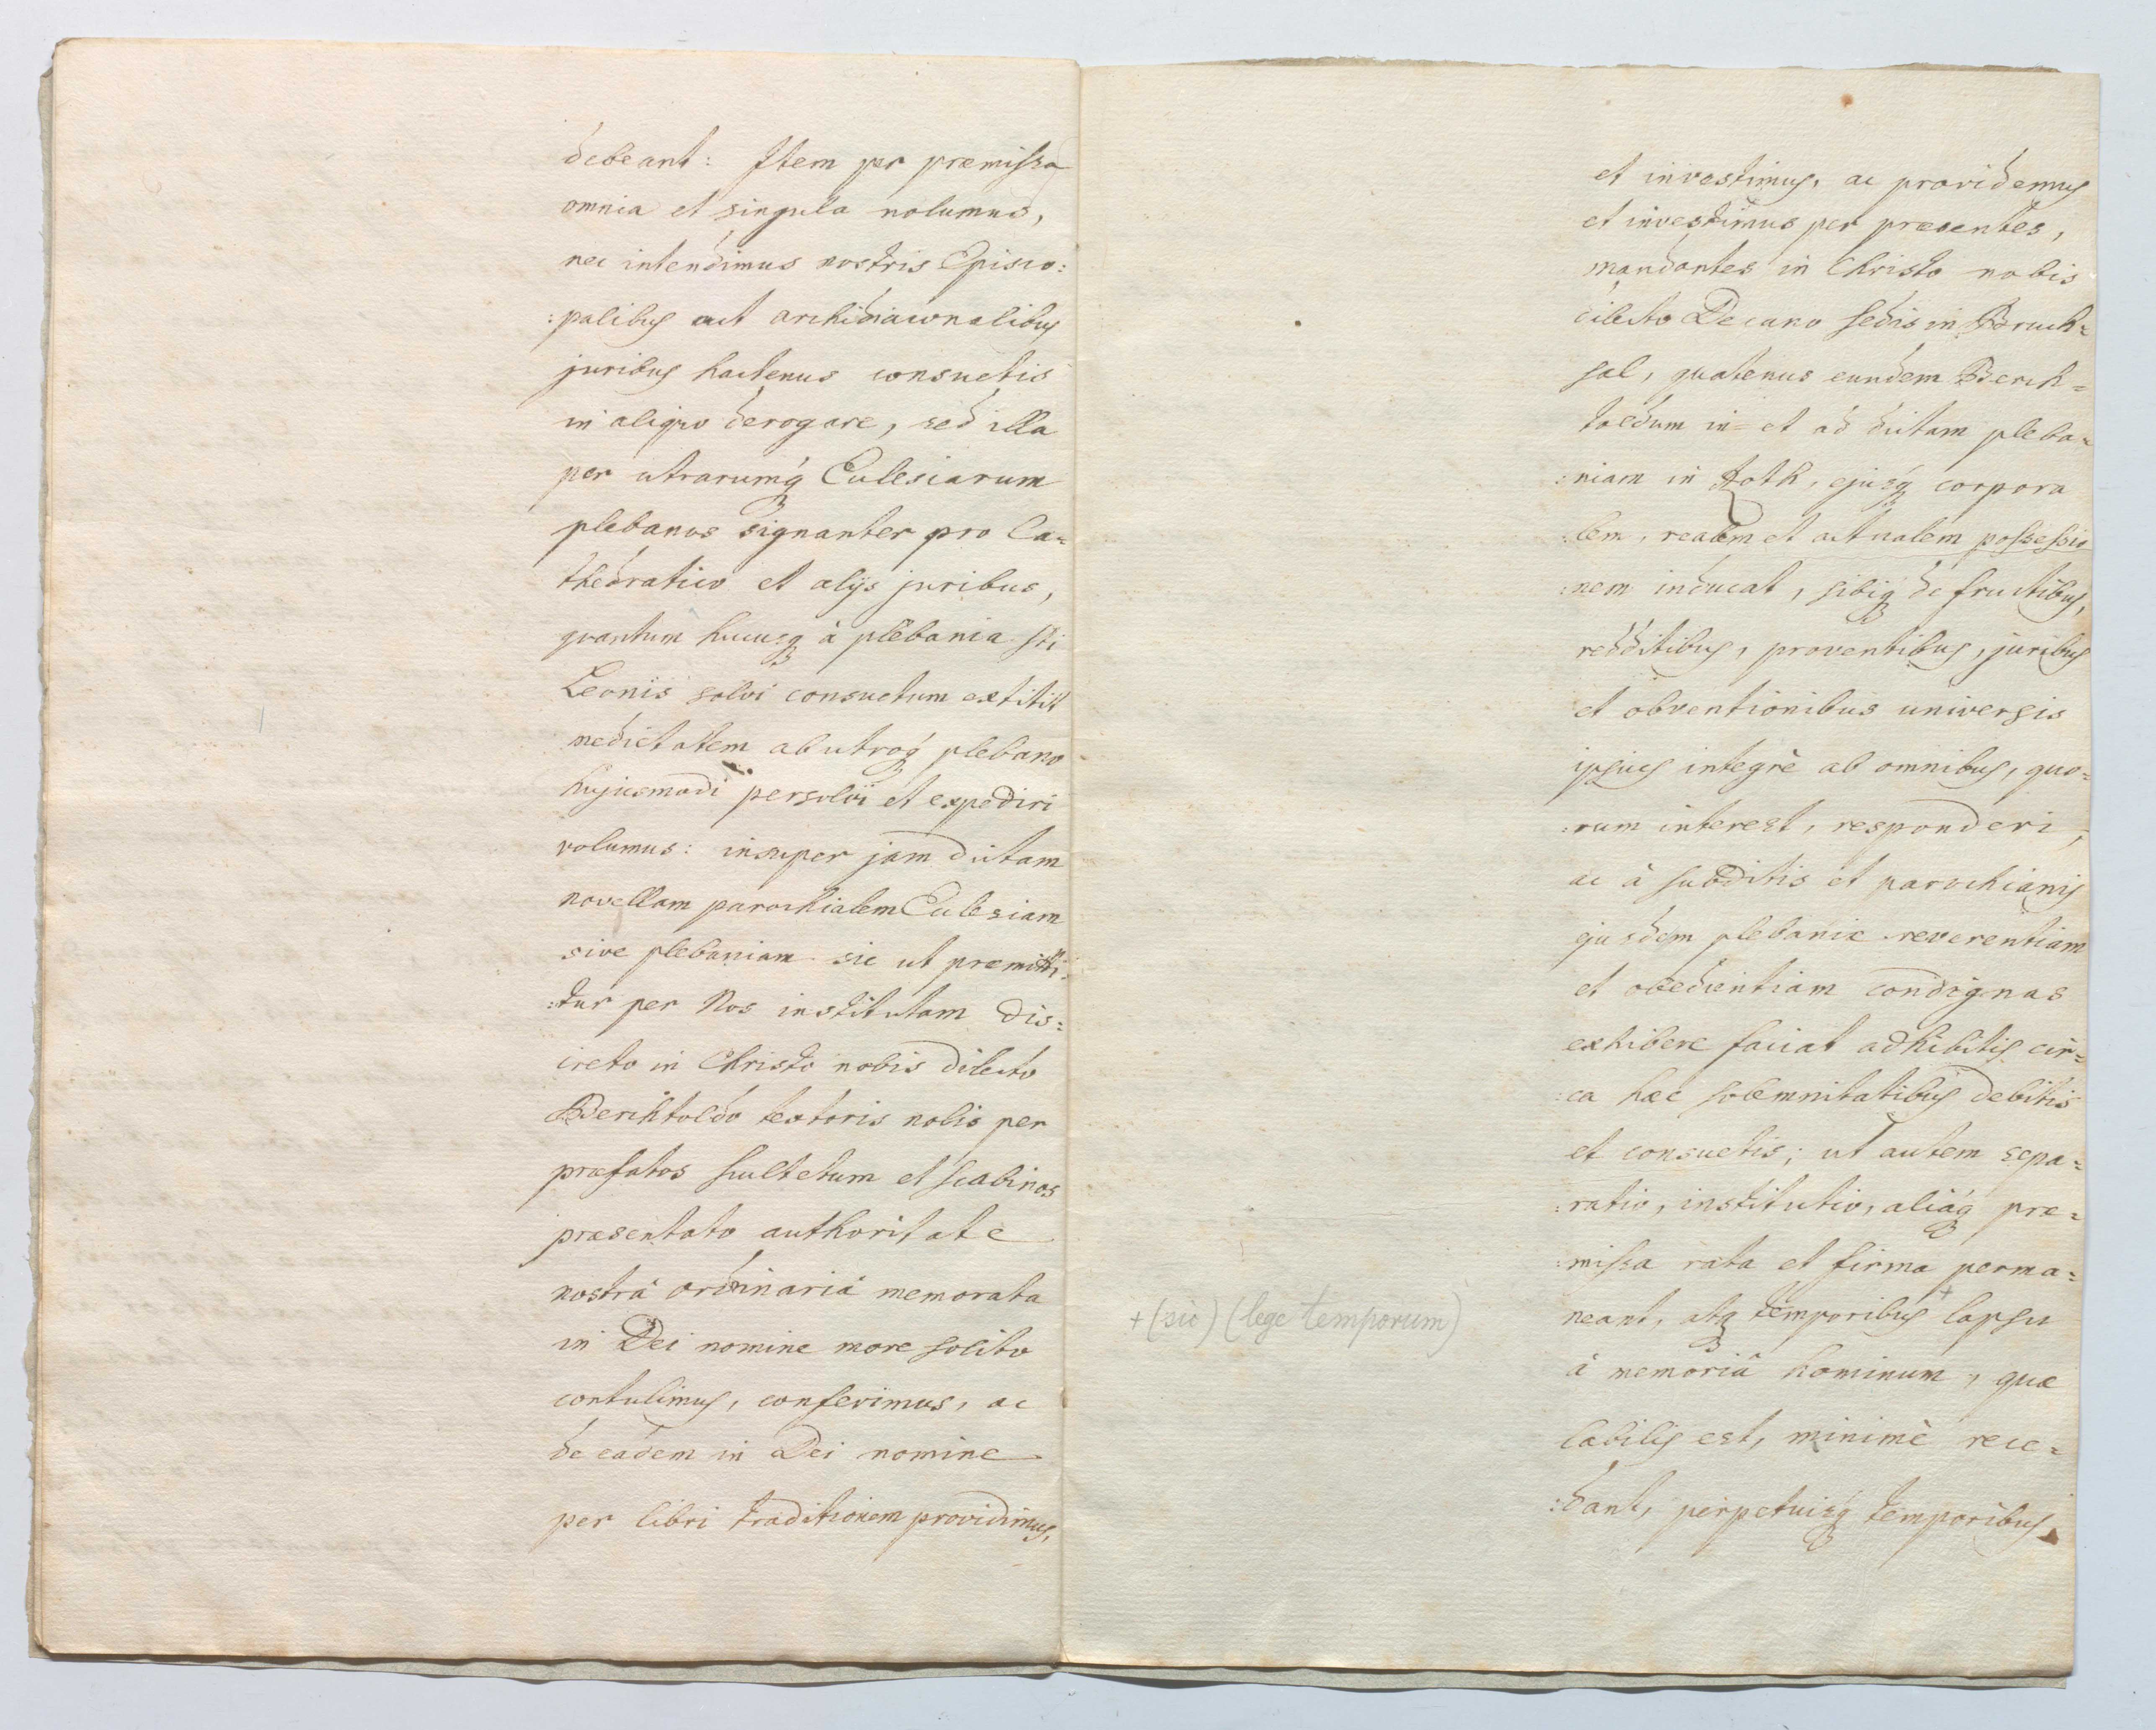 debeant: Item per præmissa
omnia et singula nolumus,
nec intendimus nostris Episco:
:palibus aut archidiaconalibus
juribus hactenus consuetis
in aliquo derogare, sed illa
per utrarumq́ꝫ Ecclesiarum
plebanos signanter pro Ca=
thedratico et alijs juribus,
quantum hucusqꝫ à plebania Sti
Leonis solvi consuetum extitit
medietatem ab utroq́ꝫ plebano
hujusmodi persolvi et expediri
volumus: insuper jam dictam
novellam parochialem Ecclesiam
sive plebaniam sic ut præmitti:
:tur per Nos institutam dis:
creto in Christo nobis dilecto
Berchtoldo textoris nobis per
præfatos scultetum et scabinos
præsentato authoritate
nostrâ ordinariâ memorata
in Dei nomine more solito
contulimus, conferimus, ac
de eadem in Dei nomine
per libri traditionem providimus,
et investimus, ac providemus
et investimus per præsentes,
mandantes in Christo nobis
dilecto Decano sedis in Bruch=
sal, quatenus eundem Berch=
toldum in= et ad dictam pleba=
:niam in Roth, ejusq́ꝫ corpora
:lem, realem et actualem possessio
:nem inducat, sibiqꝫ de fructibus,
redditibus, proventibus, juribus
et obventionibus universis
ipsius integrè ab omnibus, quo=
:rum interest, responderi,
ac à subditis et parochianis
ejusdem plebaniæ reverentiam
et obedientiam condignas
exhibere faciat adhibitis cir=
:ca hæc solemnitatibus debitis
et consuetis; ut autem sepa=
:ratio, institutio, aliaq́ꝫ præ=
:missa rata et firma perma=
neant, atqꝫ temporibus + lapsu
à memoriâ hominum, quæ
labilis est, minimè rece=
:dant, perpetuisq́ꝫ temporibus
+ (sic) (lege temporum)